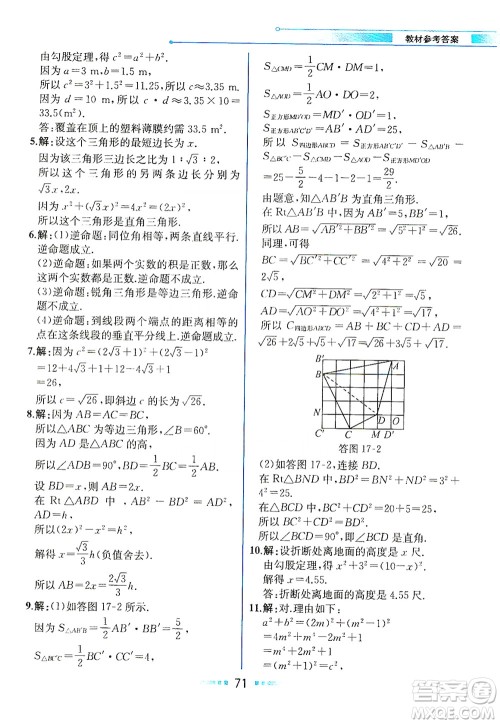 教材参考答案
由勾股定理,得 c²=a²+b².
因为 a=3 m,b=1.5 m,
所以 c²=3²+1.5²=11.25(m²).
因为 d=10 m,
所以 S²=c²·d²=11.25×10²,所以 S≈33.5(m²).
答:覆盖在顶上的塑料薄膜约需 33.5 m².
5.解:设这个三角形的最短边长为 x.
因为该三角形三边长之比为 1∶√3∶2,
所以这个三角形的另两边长分别为 √3x,2x.
因为 x²+(√3x)²=4x²=(2x)²,
所以这个三角形是直角三角形.
6.解:(1)逆命题:同位角相等,两条直线平行.逆命题成立.
(2)逆命题:如果两个实数的积是正数,那么这两个实数都是正数.逆命题不成立.
(3)逆命题:锐角三角形是等边三角形.逆命题不成立.
(4)逆命题:到线段两个端点的距离相等的点在这条线段的垂直平分线上.逆命题成立.
7.解:因为 c²=a²+b²=(2√3+1)²+(2√3-1)²
=12+4√3+1+12-4√3+1
=26,
所以 c=√26,即斜边 c 的长为√26.
8.解:因为 AB=AC=BC,
所以△ABC 为等边三角形,∠B=60°.
因为 AD 是△ABC 的高,
所以∠ADB=90°,BD=1/2BC=1/2AB.
设 BD=x,则 AB=2x.
在 Rt△ABD 中,AB²-BD²=AD²,
所以(2x)²-x²=h²,
解得 x=√3/3 h(负值舍去).
所以 AB=2x=2√3/3 h.
9.解:(1)如答图 17-2 所示.
因为 S△AB'B=1/2AB'·BB'=5/2,
S△BC'C=1/2BC'·CC'=4,
S△CMD=1/2CM·DM=1,
S△AOD=1/2AO·DO=2,
S正方形MDD'O=MD'·DD'=1,
所以 S四边形ABCD=S正方形-S△AB'B-
=25-5/2-4-1-2-1=29/2.
由题意,知△AB'B 为直角三角形.
在 Rt△AB'B 中,由勾股定理,得
AB=√AB'²+BB'²=√5²+1²=√26.
同理可得
CD=√CM²+DM²=√1²+2²=√5,
AD=√AO²+DO²=√1²+4²=√17,
所以 C四边形ABCD=AB+BC+CD+AD=
√26+2√5+√5+√17=√26+3√5+√17.
B' A
B
D
C M
答图 17-2
(2)如答图 17-2,连接 BD.
在△BCD 中,BC²+CD²=BD²,
所以△BCD 为直角三角形.
所以∠BCD=90°,即∠BCD 是直角.
10.解:设折断处离地面的高度是 x 尺.
由勾股定理,得 x²+3²=(10-x)²,
解得 x=4.55.
答:折断处离地面的高度是 4.55 尺.
11.解:对.理由如下:
a²+b²=(2m)²+(m²-1)²
=4m²+m⁴-2m²+1
=m⁴+2m²+1
=(m²+1)²
=c².
71